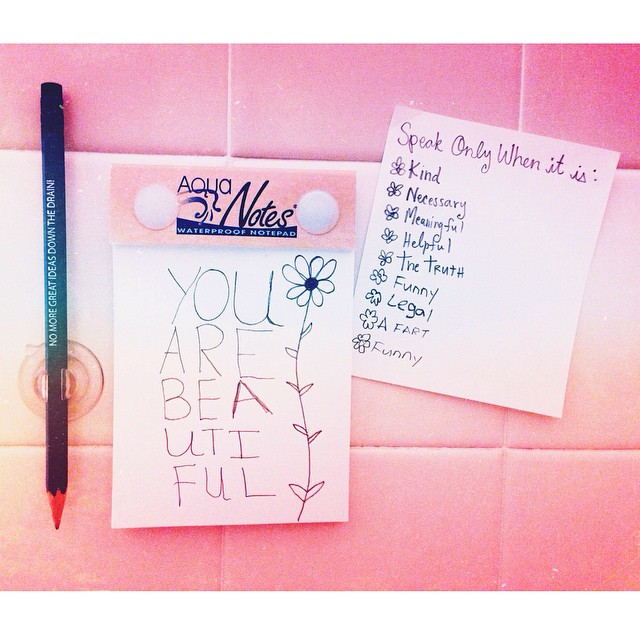 NO MORE GREAT IDEAS DOWN THE DRAIN!
AQUA
Notes
WATERPROOF NOTEPAD
YOU
ARE
BEA
UTI
FUL
Speak Only When it is:
Kind
Necessary
Meaningful
Helpful
The TRUTH
Funny
Legal
A FART
Funny